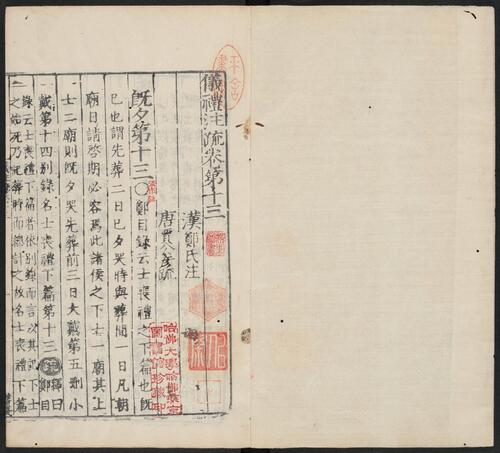 儀禮注疏卷第十三
漢鄭氏注
唐賈公彥疏
既夕第十三〇鄭目錄云士喪禮之下篇也既
已也謂先葬二日已夕哭時與葬間一日凡朝
廟日請啓期必容焉此諸侯之下士一廟其上
士二廟則既夕哭先葬前三日大戴第五刪小
戴第十四別錄名士喪禮下篇第十三疏釋曰鄭目
錄云士喪禮下篇者依別錄而言以其記士
之始死乃記葬時而總記之故名士喪禮下篇
哈佛大學哈佛燕京
圖書館珍藏印